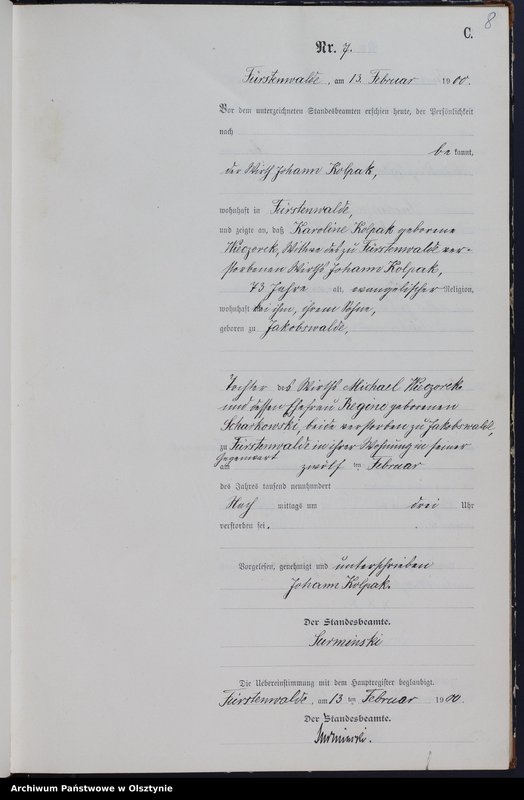 8
C.
Nr. 7.
Fürstenwalde, am 13. Februar 1900.
Vor dem unterzeichneten Standesbeamten erschien heute, der Persönlichkeit
nach
be kannt,
der Wirth Johann Kolpak,
wohnhaft in Fürstenwalde,
und zeigte an, daß Karoline Kolpak geborene
Wieczorek, Witwe des zu Fürstenwalde ver-
storbenen Wirths Johann Kolpak,
73 Jahre alt, evangelischer Religion,
wohnhaft bei ihm, ihrem Sohne,
geboren zu Jakobswalde,
Tochter des Wirths Michael Wieczorek
und dessen Ehefrau Regine geborenen
Scharkowski, beide verstorben zu Jakobswalde,
zu Fürstenwalde in ihrer Wohnung in seiner
Gegenwart
am zwölf ten Februar
des Jahres tausend neunhundert
Nach mittags um drei Uhr
verstorben sei.
Vorgelesen, genehmigt und unterschrieben
Johann Kolpak.
Der Standesbeamte.
Surminski
Die Uebereinstimmung mit dem Hauptregister beglaubigt.
Fürstenwalde, am 13 ten Februar 1900.
Der Standesbeamte.
Surminski.
Archiwum Państwowe w Olsztynie